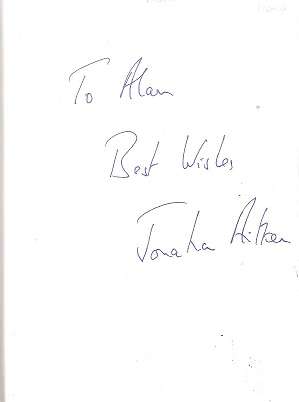 To Alan
Best Wishes
Jonathan Aitken